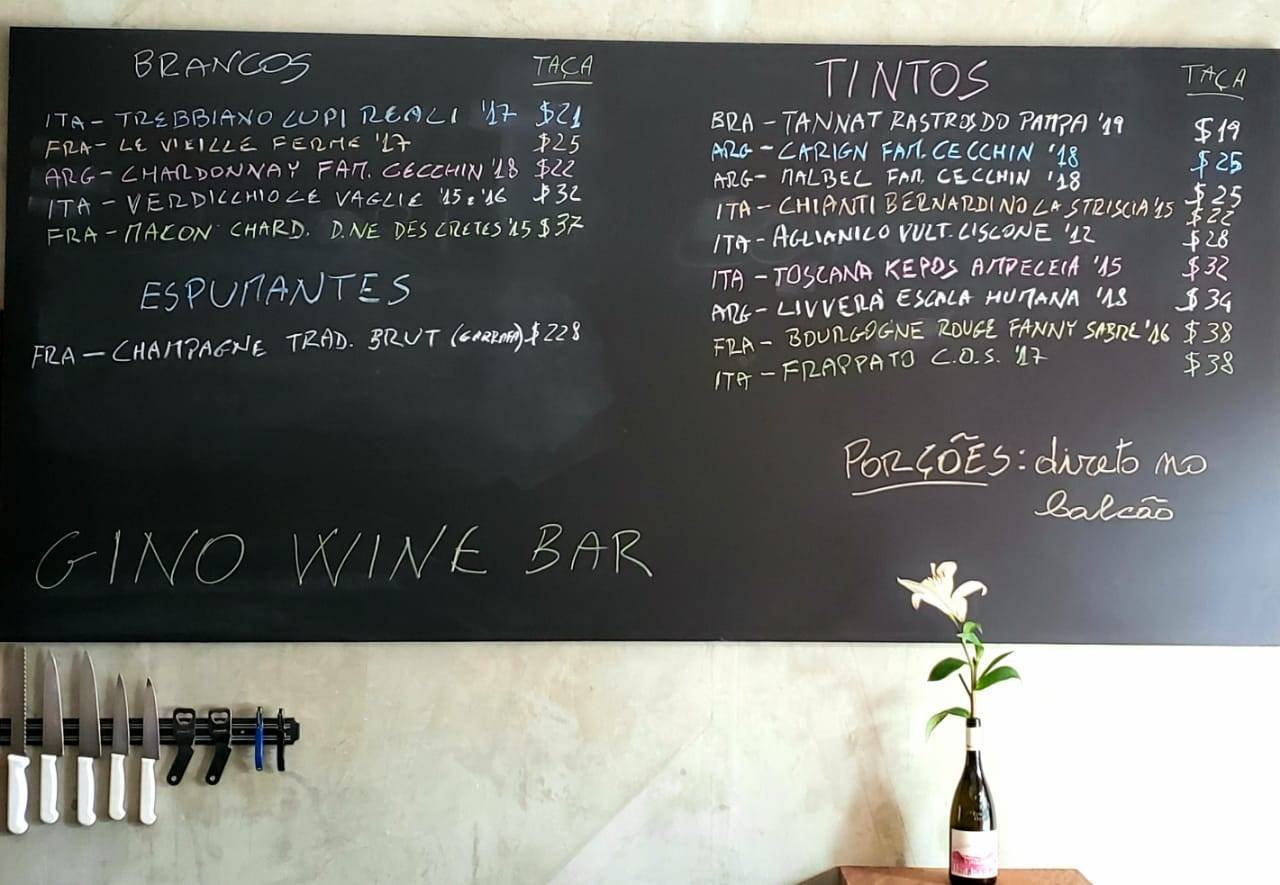 BRANCOS TAÇA
ITA - TREBBIANO LUPI REALI '17 $21
FRA - LE VIEILLE FERME '17 $25
ARG - CHARDONNAY FAM. CECCHIN '18 $22
ITA - VERDICCHIO LE VAGLIE '15 e '16 $32
FRA - MACON CHARD. D.NE DES CRETES '15 $37
ESPUMANTES
FRA - CHAMPAGNE TRAD. BRUT (GARRAFA) $228
GINO WINE BAR
TINTOS TAÇA
BRA - TANNAT RASTROS DO PAMPA '19 $19
ARG - CARIGN FAM. CECCHIN '18 $25
ARG - MALBEC FAM CECCHIN '18 $25
ITA - CHIANTI BERNARDINO LA STRISCIA '15 $22
ITA - AGLIANICO VULT. LISCONE '12 $28
ITA - TOSCANA KEPOS AMPELEIA '15 $32
ARG - LIVVERÀ ESCALA HUMANA '18 $34
FRA - BOURGOGNE ROUGE FANNY SABRE '16 $38
ITA - FRAPPATO C.O.S. '17 $38
PORÇÕES: direto no
balcão